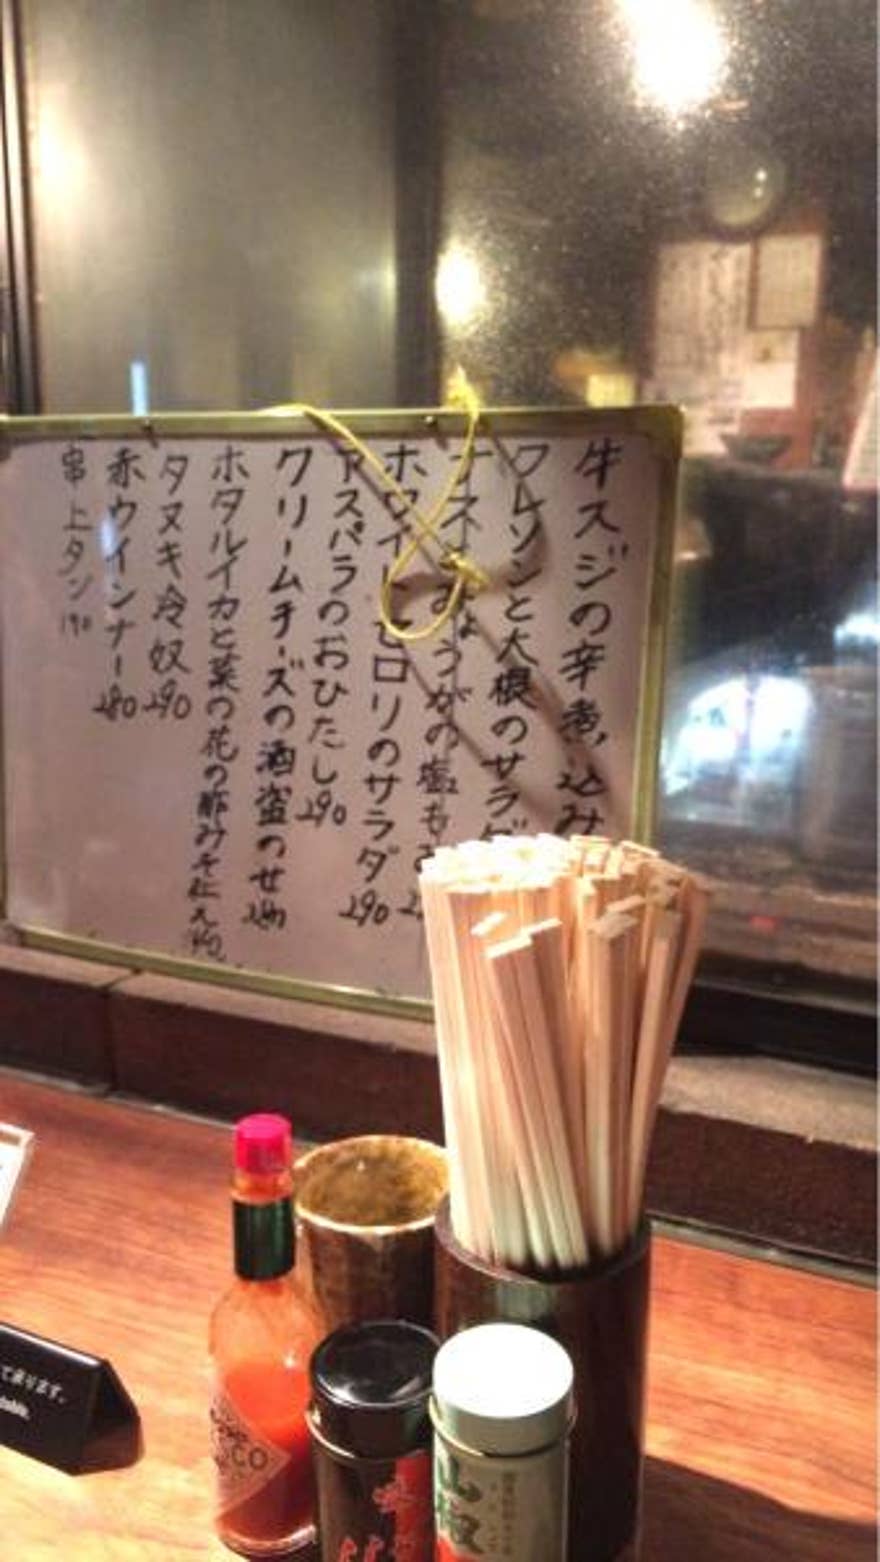 牛スジの辛煮込み
クレソンと大根のサラダ
ナスみょうがの塩もみ
ホワイトセロリのサラダ 290
アスパラのおひたし 290
クリームチーズの酒盗のせ 290
ホタルイカと菜の花の酢みそ仕立
タヌキ冷奴 290
赤ウインナー 280
串 上タン 190
山椒
ております。